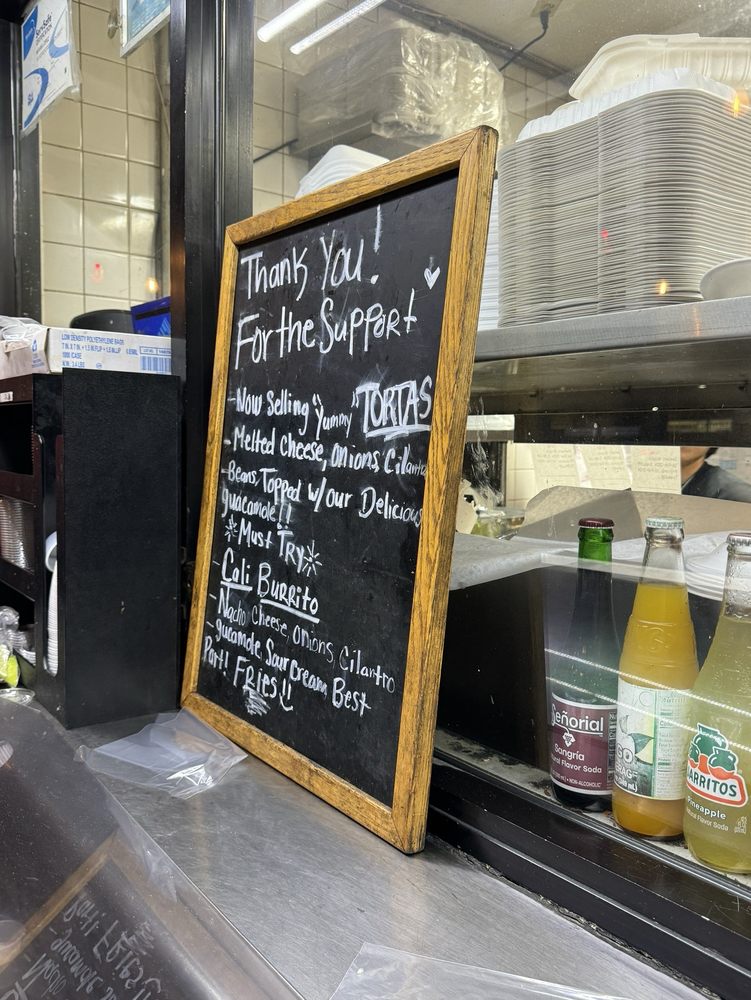 Thank You!
For the Support
- Now Selling "Yummy" TORTAS
- Melted Cheese, onions Cilantro
- Beans, Topped w/our Delicious
guacamole!!
Must Try
Cali Burrito
- Nacho Cheese, onions, Cilantro
- guacamole, Sour cream, Best
Part! FRIES!!
LOW DENSITY POLYETHYLENE BAGS
1000/CASE
Señorial
Sangria
Flavor Soda
NON-ALCOHOLIC
JARRITOS
Pineapple
Flavor Soda